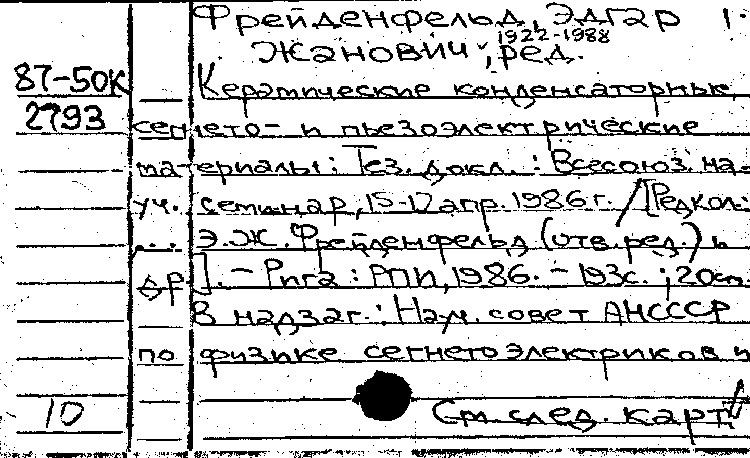 Фрейденфельд, Эдгар 1.
Жанович, 1922-1988 ; ред.
87-50К Керамические конденсаторные,
2793 сегнето- и пьезоэлектрические
материалы : Тез. докл. : Всесоюз. на-
уч. семинар, 15-17 апр. 1986 г. / [Редкол.:
Э. Ж. Фрейденфельд (отв. ред.) и
др]. - Рига : РПИ, 1986. - 193с. ; 20см.
В надзаг.: Науч. совет АН СССР
по физике сегнетоэлектриков и
10 См. след. карт.